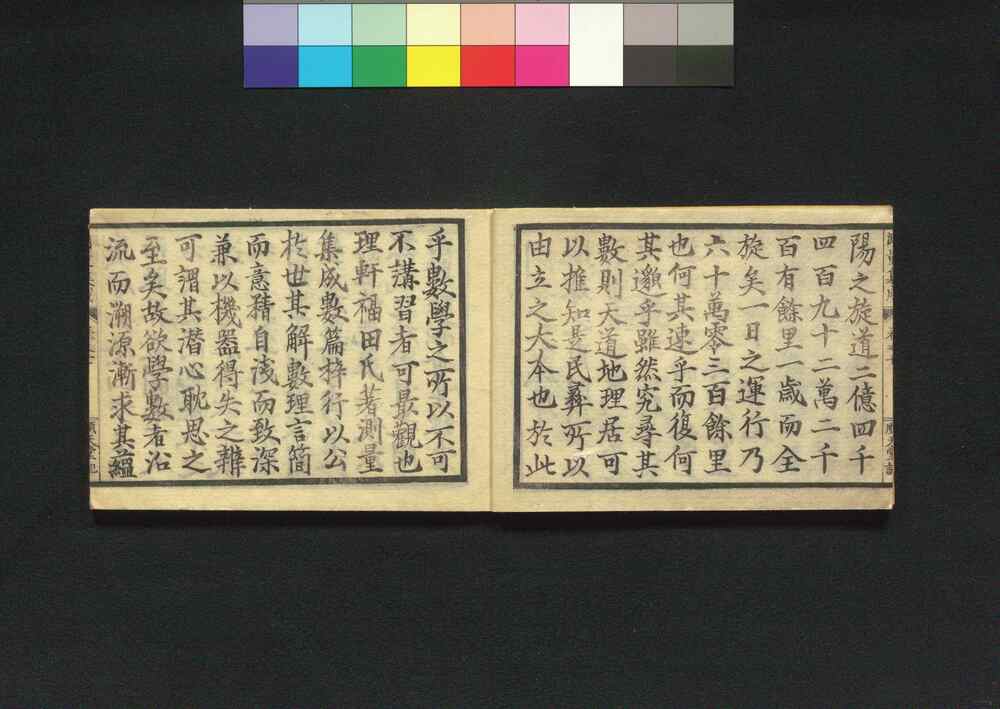 陽之旋道二億四千
四百九十二萬二千
百有餘里一歲而全
旋矣一日之運行乃
六十萬零三百餘里
也何其速乎而復何
其邈乎雖然究尋其
數則天道地理居可
以推知是民彝所以
由立之大本也於此
乎數學之所以不可
不講習者可最觀也
理軒福田氏著測量
集成數篇梓行以公
於世其解數理言簡
而意䅲自淺而致深
兼以機器得失之辨
可謂其潛心耽思之
至矣故欲學數者沿
流而溯源漸求其蘊